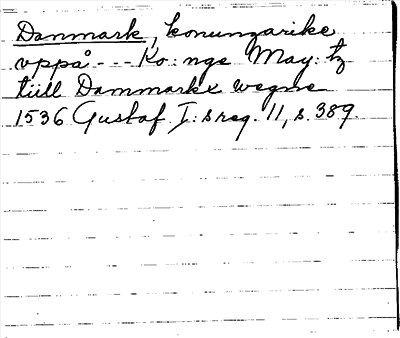 Danmark, konungarike
vppå --- Ko:nge May:tz
tiill Dammarkx wegne
1536 Gustaf I:s reg. 11, s. 389.